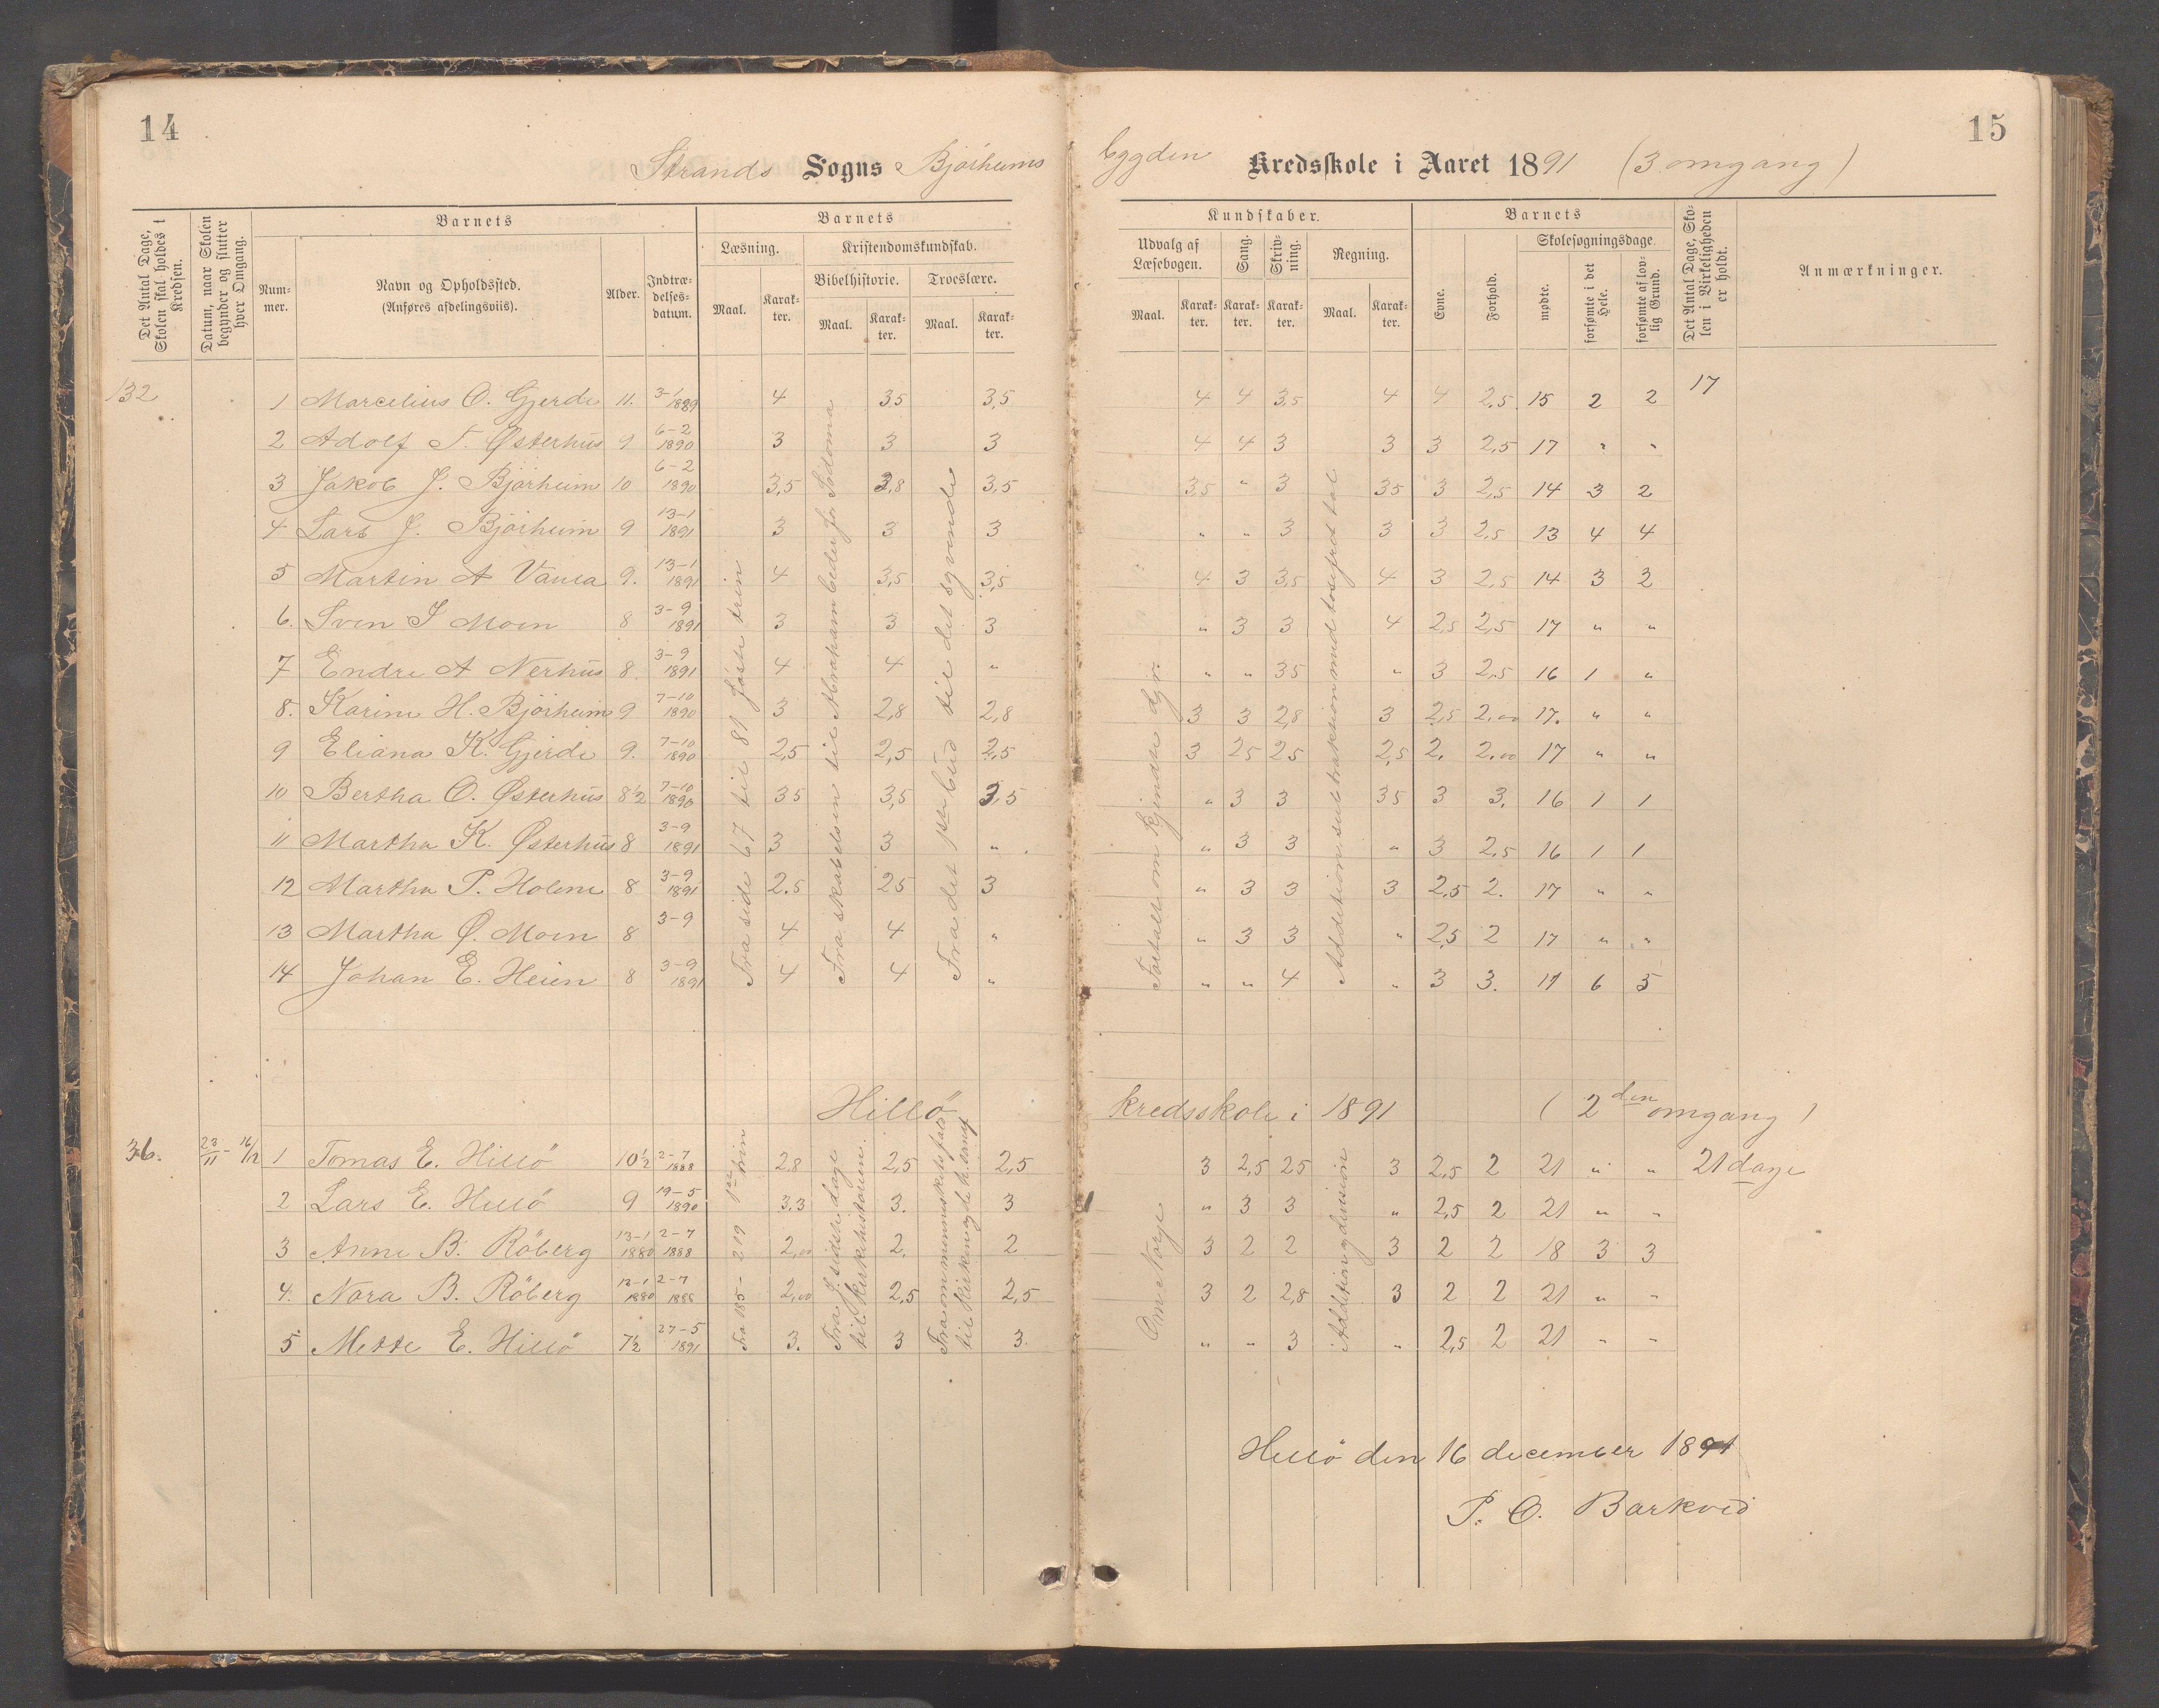 14
Strands Sogns Bjørheims
bygden Kredsskole i Aaret 1891 (3 omgang)
15
Det Antal Dage, Skolen skal holdes i Kredsen.
Datum, naar Skolen begynder og slutter hver Omgang.
Barnets
Num-mer.
Navn og Opholdssted.
(Anføres afdelingsviis).
Alder.
Indtræ-delses-datum.
Barnets
Læsning.
Maal. Karak-ter.
Kristendomskundskab.
Bibelhistorie. Troeslære.
Maal. Karak-ter. Maal. Karak-ter.
Kundskaber.
Udvalg af Læsebogen.
Maal. Karak-ter.
Sang. Karak-ter.
Skriv-ning. Karak-ter.
Regning.
Maal. Karak-ter.
Barnets
Evne. Forhold.
Skolesøgningsdage.
mødte. forsømte i det Hele. forsømte af lov-lig Grund.
Det Antal Dage, Sko-len i Virkeligheden er holdt.
Anmærkninger.
132 1 Marcelius O. Gjerde 11. 3-1 1889 4 3,5 3,5 4 4 3,5 4 4 2,5 15 2 2 17
2 Adolf T. Østerhus 9 6-2 1890 3 3 3 4 4 3 3 3 2,5 17 " "
3 Jakob J. Bjørheim 10 6-2 1890 3,5 3,8 3,5 3,5 " 3 3,5 3 2,5 14 3 2
4 Lars J. Bjørheim 9 13-1 1891 3 3 3 " " 3 3 3 2,5 13 4 4
5 Martin A Vaula 9. 13-1 1891 4 3,5 3,5 4 3 3,5 4 3 2,5 14 3 2
6. Sven S Moen 8 3-9 1891 3 3 3 " 3 3 4 2,5 2,5 17 " "
7 Endre A Nerhus 8. 3-9 1891 4 4 " " " 35 " 3 2,5 16 1 "
8. Karine H. Bjørheim 9 7-10 1890 3 2,8 2,8 3 3 2,8 3 2,5 2,00 17. " "
9 Eliana K. Gjerde 9. 7-10 1890 2,5 2,5 2,5 3 25 25 2,5 2. 2,00 17 " "
10 Bertha O. Østerhus 8½ 7-10 1890 35 3,5 3,5 " 3 3 35 3 3. 16 1 1
11 Martha K. Østerhus 8 3-9 1891 3 3 " " 3 3 " 3 2,5 16 1 1
12 Martha P. Holene 8 3-9 1891 2.5 25 3 " 3 3 3 2,5 2. 17 " "
13 Martha Ø. Moen 8 3-9 4 4 " " 3 3 " 2,5 2 17 " "
14 Johan E. Heien 8 3-9 1891 4 4 " " " 4 " 3 3. 11 6 5
Fra side 67 til 81 første trin
Fra skabelsen til Abraham beder for Sodoma
Fra det 1ste bud til det syvende
Fortalt om kjendte dyr.
Addition subtraksion med tosifret tal
Hillö kredsskole i 1891 (2den omgang)
36. 23/11 - 16/12 1 Tomas E. Hillö 10½ 2-7 1888 2,8 2,5 2,5 3 2,5 25 3 2,5 2 21 " " 21 dage
2 Lars E. Hillö 9 19-5 1890 3.3 3. 3 " 3 3 " 2,5 2 21 " "
3 Anne B. Röberg 13-1 1880 2-7 1888 2,00 2. 2 3 2 2 3 2 2 18 3 3
4. Nora B. Röberg 13-1 1880 2-7 1888 2,00 2,5 2,5 3 2 2,8 3 2 2 21 " "
5 Mette E. Hillö 7½ 27-5 1891 3. 3 3. " " 3 " 2,5 2 21 " "
Fra 185 - 219 1ste trin
Fra J. sidste dage til kirkehistorien.
Fra om menneskets fald til
Om Norge
Addition og division
Hillö den 16 december 1891
P. O. Barkved